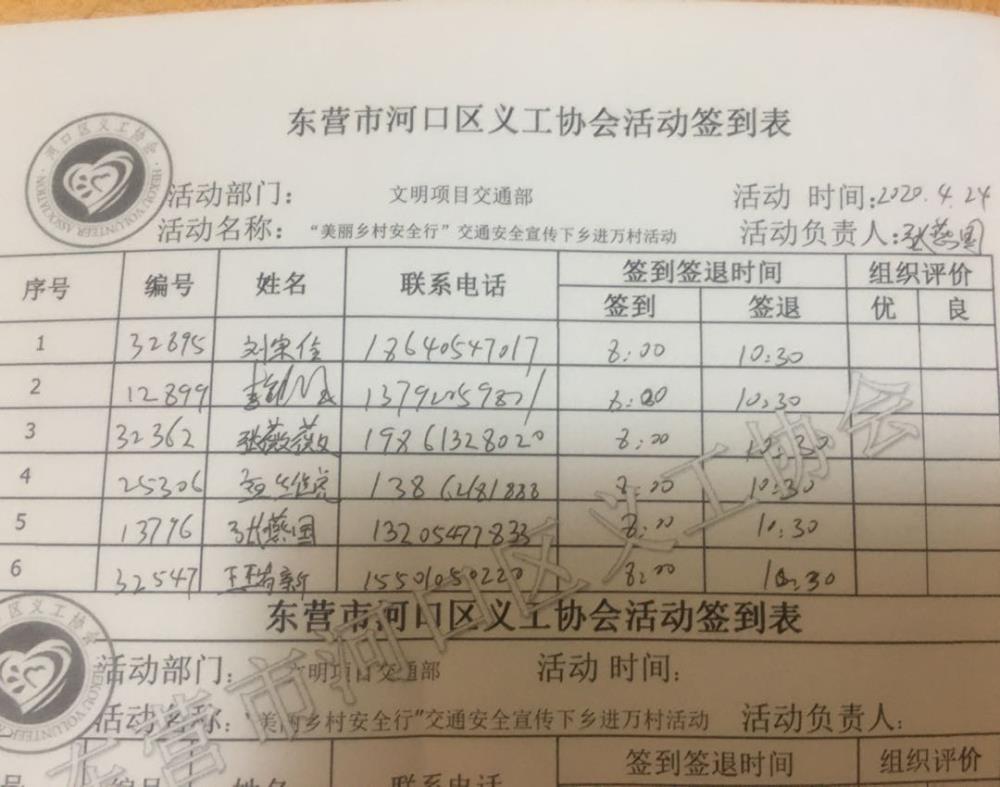 东营市河口区义工协会活动签到表
河口区义工协会
HEKOU VOLUNTEER ASSOCIATION
活动部门： 文明项目交通部 活动 时间:2020.4.24
活动名称： “美丽乡村安全行”交通安全宣传下乡进万村活动 活动负责人:张燕国
序号 编号 姓名 联系电话 签到签退时间 组织评价
签到 签退 优 良
1 32895 刘宗佺 18640547017 8:00 10:30
2 12899 8:00 10:30
3 32362 张薇薇 19861328020 8:00 10:30
4 25306 8:00 10:30
5 13796 张燕国 13205477833 8:00 10:30
6 32547 15501050220 8:00 10:30
东营市河口区义工协会活动签到表
区义工协会
HEKOU VOLUNTEER
活动部门： 文明项目交通部 活动 时间：
活动名称：“美丽乡村安全行”交通安全宣传下乡进万村活动 活动负责人：
号 编号 姓名 联系电话 签到签退时间 组织评价
东营市河口区义工协会